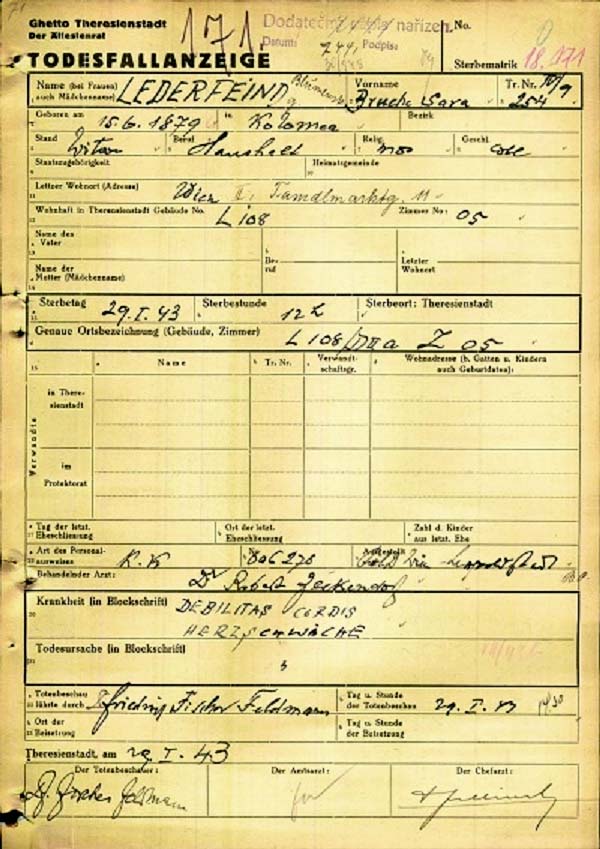 Ghetto Theresienstadt
Der Ältestenrat
171.
Dodatečný nařízen.
Datum: Podpis:
No.
TODESFALLANZEIGE
Sterbematrik 18.071
Name (bei Frauen auch Mädchenname) LEDERFEIND Vorname Sara Tr. Nr. IV/9 254
Geboren am 15.6.1879 in Kolomea Bezirk
Stand Witwe Beruf Haushalt Relig. mos Geschl.
Staatszugehörigkeit Heimatsgemeinde
Letzter Wohnort (Adresse) Wien II,
Wohnhaft in Theresienstadt Gebäude No. L 108 Zimmer No. 05
Name des Vater Beruf Letzter Wohnort
Name der Mutter (Mädchenname)
Sterbetag 29.I.43 Sterbestunde 12 h Sterbeort: Theresienstadt
Genaue Ortsbezeichnung (Gebäude, Zimmer) L 108 Z 05
Name Tr. Nr. Verwandtschaftsgr. Wohnadresse (b. Gatten u. Kindern auch Geburtdaten):
Verwandte
in Theresienstadt
im Protektorat
Tag der letzt. Eheschliessung Ort der letzt. Eheschliessung Zahl d. Kinder aus letzt. Ehe
Art des Personalausweises K.K No. 806278 Ausgestellt
Behandelnder Arzt: Dr Robert
Krankheit (in Blockschrift) DEBILITAS CORDIS
HERZSCHWÄCHE
Todesursache (in Blockschrift)
Totenbeschau führte durch Fischer Feldmann Tag u. Stunde der Totenbeschau 29.I.43
Ort der Beisetzung Tag u. Stunde der Beisetzung
Theresienstadt, am 29.I.43
Der Totenbeschauer: Der Amtsarzt: Der Chefarzt: